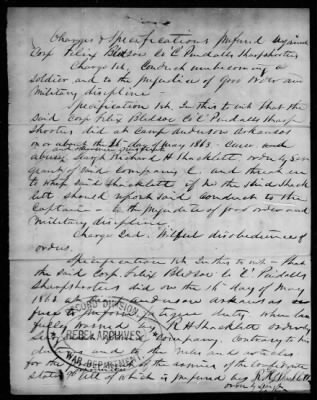 Charges & Specifications prefered against
Corp Felix Bledsoe Co "C" Pindalls Sharpshooters
Charge 1st. Conduct unbecoming a
soldier and to the prejudice of good order and
Military discipline —
Specification 1st. In this to wit that the
said Corp. Felix Bledsoe Co "C" Pindalls Sharp
Shooters did at Camp Anderson Arkansas
on or about the 16th day of May 1863. Curse and
abuse Sergt Richard H Shacklett orderly Ser
geant of said Company C. and threaten
to whip said Shacklett if he the said Shack
lett should report said conduct to the
Captain — to the prejudice of good order and
Military discipline.
Charge 2nd. Wilful disobedience of
orders.
Specification 1st. In this to wit — that
the said Corp. Felix Bledsoe Co "C" Pindalls
Sharpshooters did on the 16th day of May
1863 at Camp Anderson Arkansas re
fuse to perform fatigue duty when law
fully warned by R H Shacklett orderly
Company. Contrary to his
duty and to the rules and articles
for the of the armies of the Confederate
States all of which is prefered by R H Shacklett
orderly Sergt
RECORD DIVISION
REBEL ARCHIVES
WAR DEPARTMENT